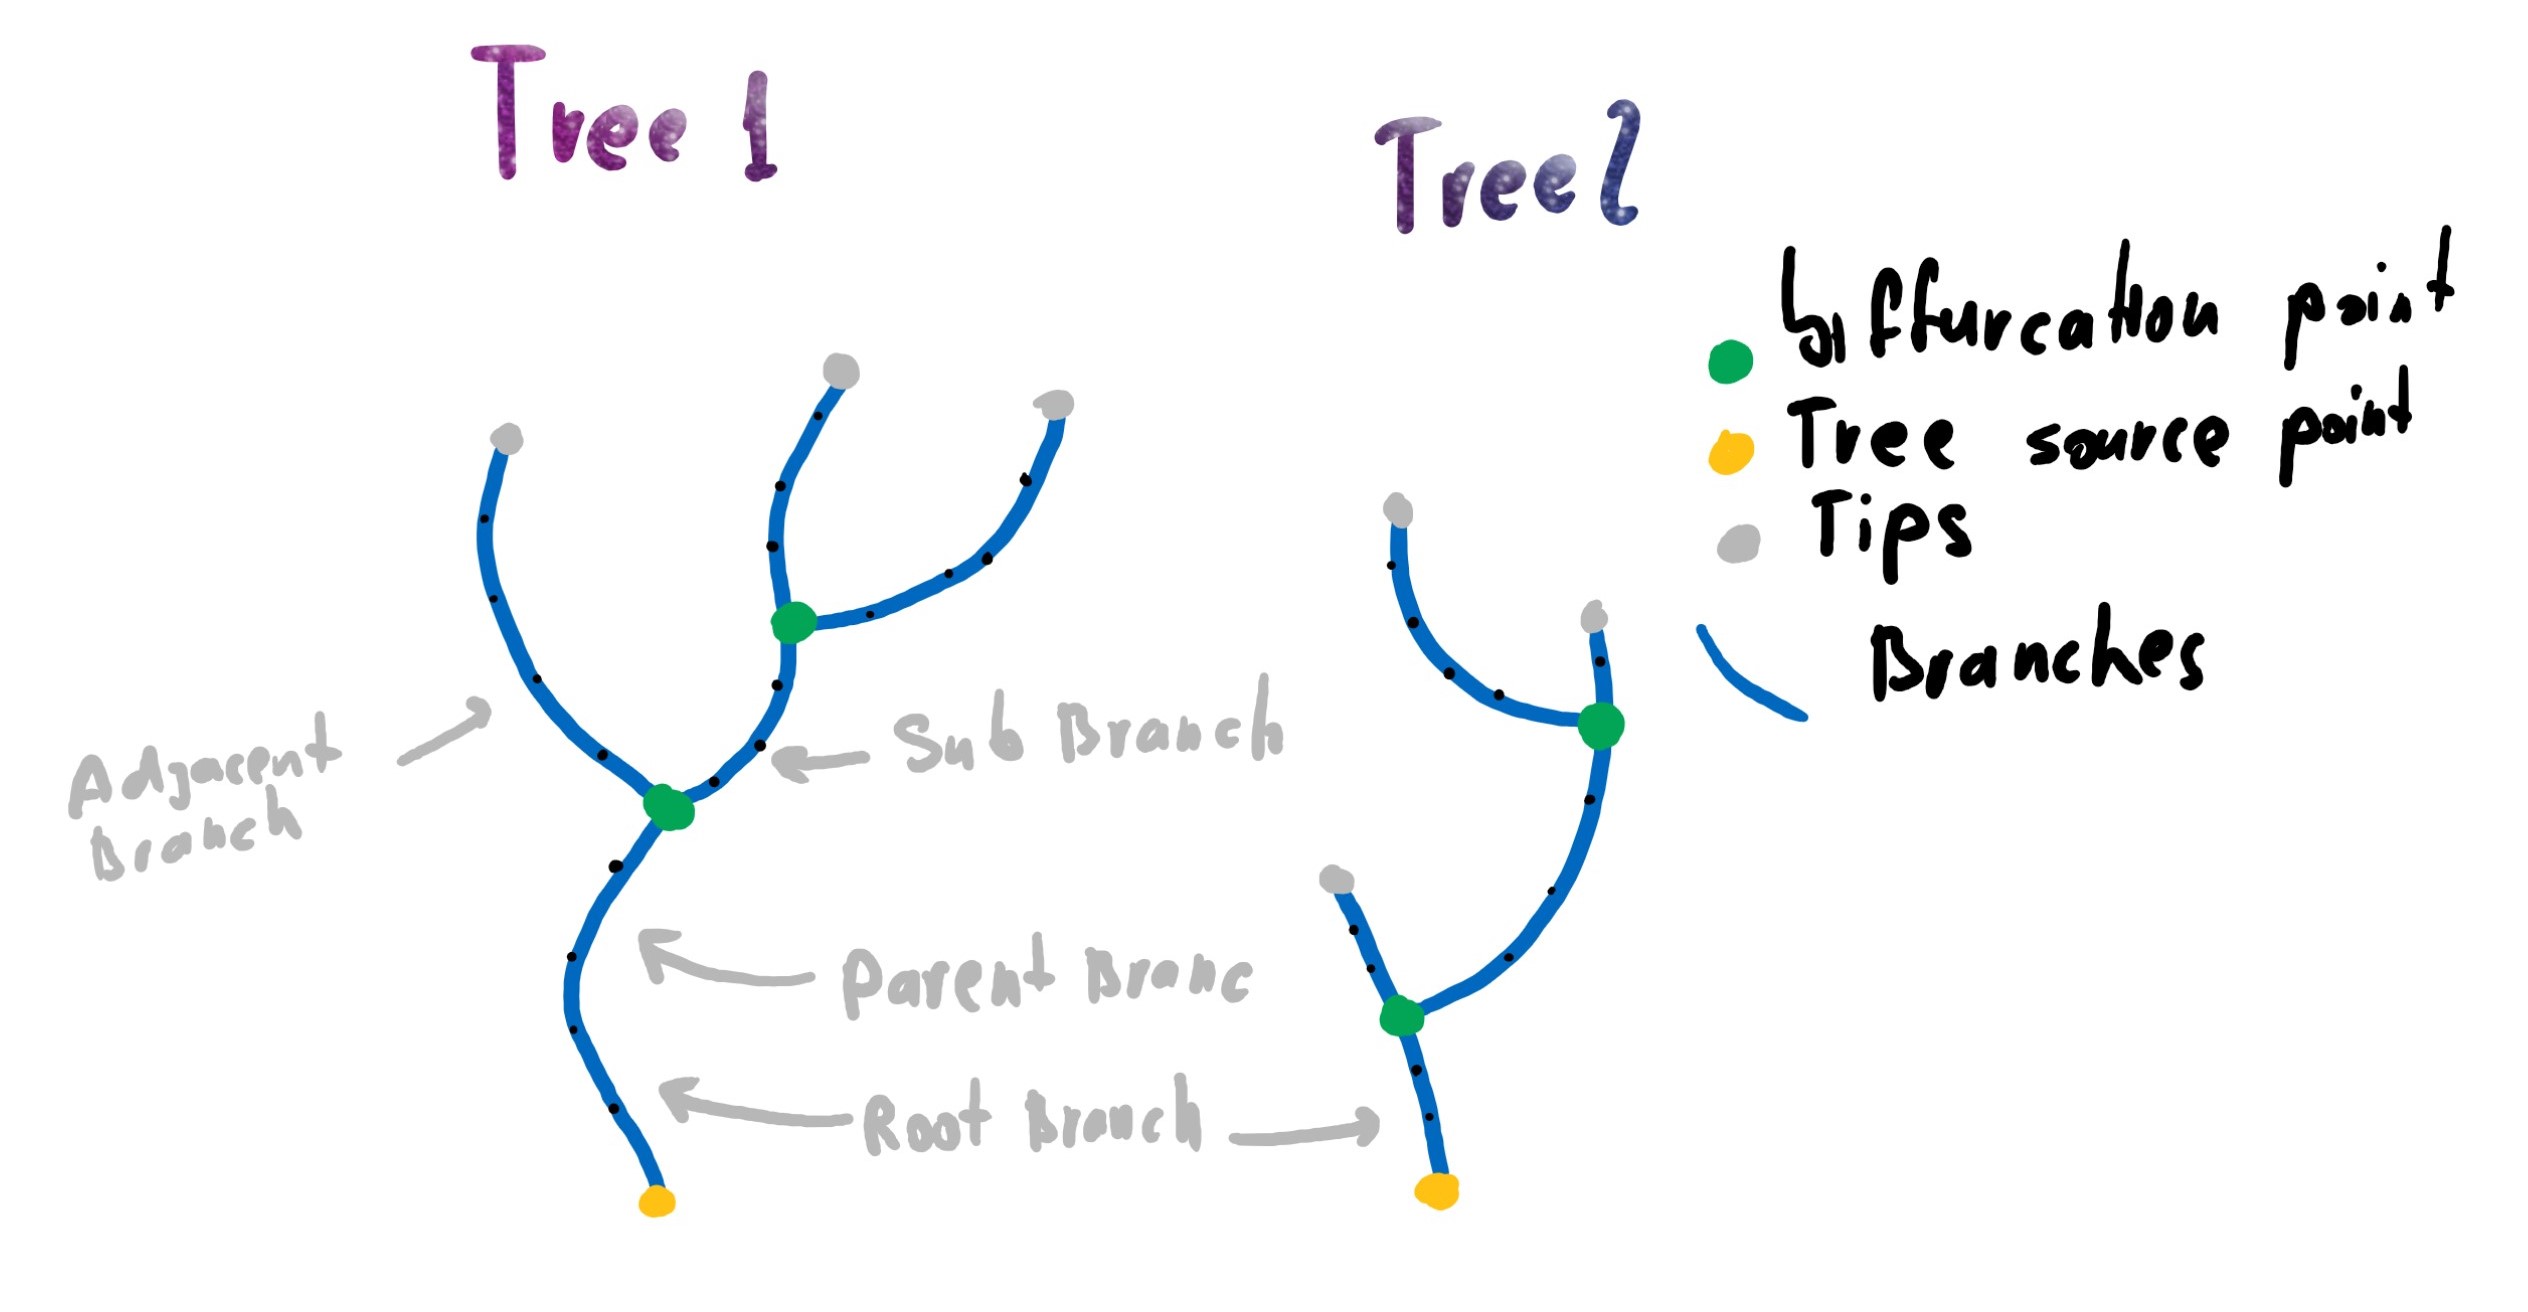 Tree 1
Tree2
biffurcation point
Tree source point
Tips
Branches
Adjacent
Branch
Sub Branch
Parent Branc
Root Branch